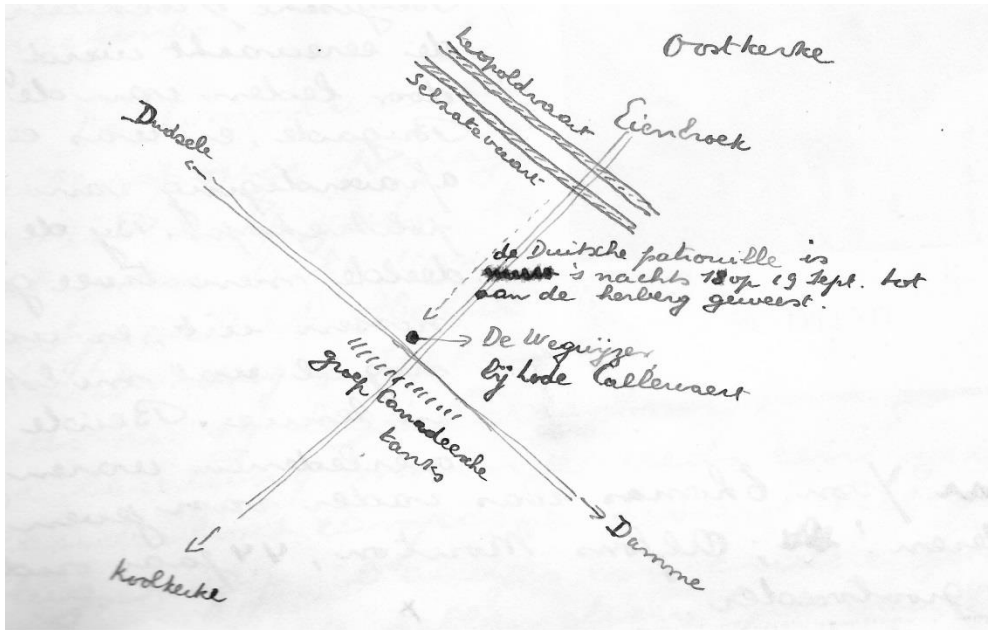 Oostkerke
Leopoldvaart
Selzatevaart
Eienbroek
Dudsele
de Duitsche patrouille is
's nachts 18 op 19 Sept. tot
aan de herberg geweest.
De Wegwijzer
bij Lode Callewaert
groep Canadeesche
tanks
Damme
Koolkerke